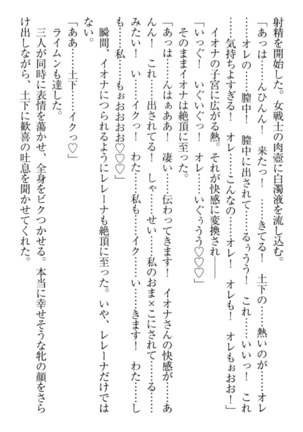 射精を開始した。女戦士の肉壺に白濁液を流し込む。
「あっは……んひんん！　来たっ！　……きてる！　土下の……熱いのが……オレ
……オレの……膣中！　膣中に出されて……るぅうう！　これ……いいっ！　これ
……気持ちよすぎる！　オレ……こんなの……オレ！　オレも！　オレもぉおお！」
イオナの子宮に広がる熱。それが快感に変換され――
「いっぐ！　いぐいぐっ！　オレ……いぐぅうう♡♡」
そのままイオナは絶頂に至った。
「あっは……んはぁああ！　凄い……伝わってきます！　イオナさんの快感が……あ
んん！　これ……出されてる！　しゃ……せい……私のおま×こにされて……る……
みたい！　い……イクっ！　わた……私も……イク……い……きます！　わた……し
も……私……もぉおおお♡♡♡」
瞬間、イオナにつられるようにレレーナも絶頂に至った。いや、レレーナだけでは
ない。
「ああ……土下……イクっ♡」
ライムンも達した。
三人が同時に表情を蕩かせ、全身をビクつかせる。本当に幸せそうな牝の顔をさら
け出しながら、土下に歓喜の吐息を聞かせてくれた。